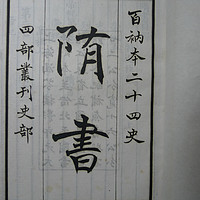 百衲本二十四史
隋書
四部叢刊史部